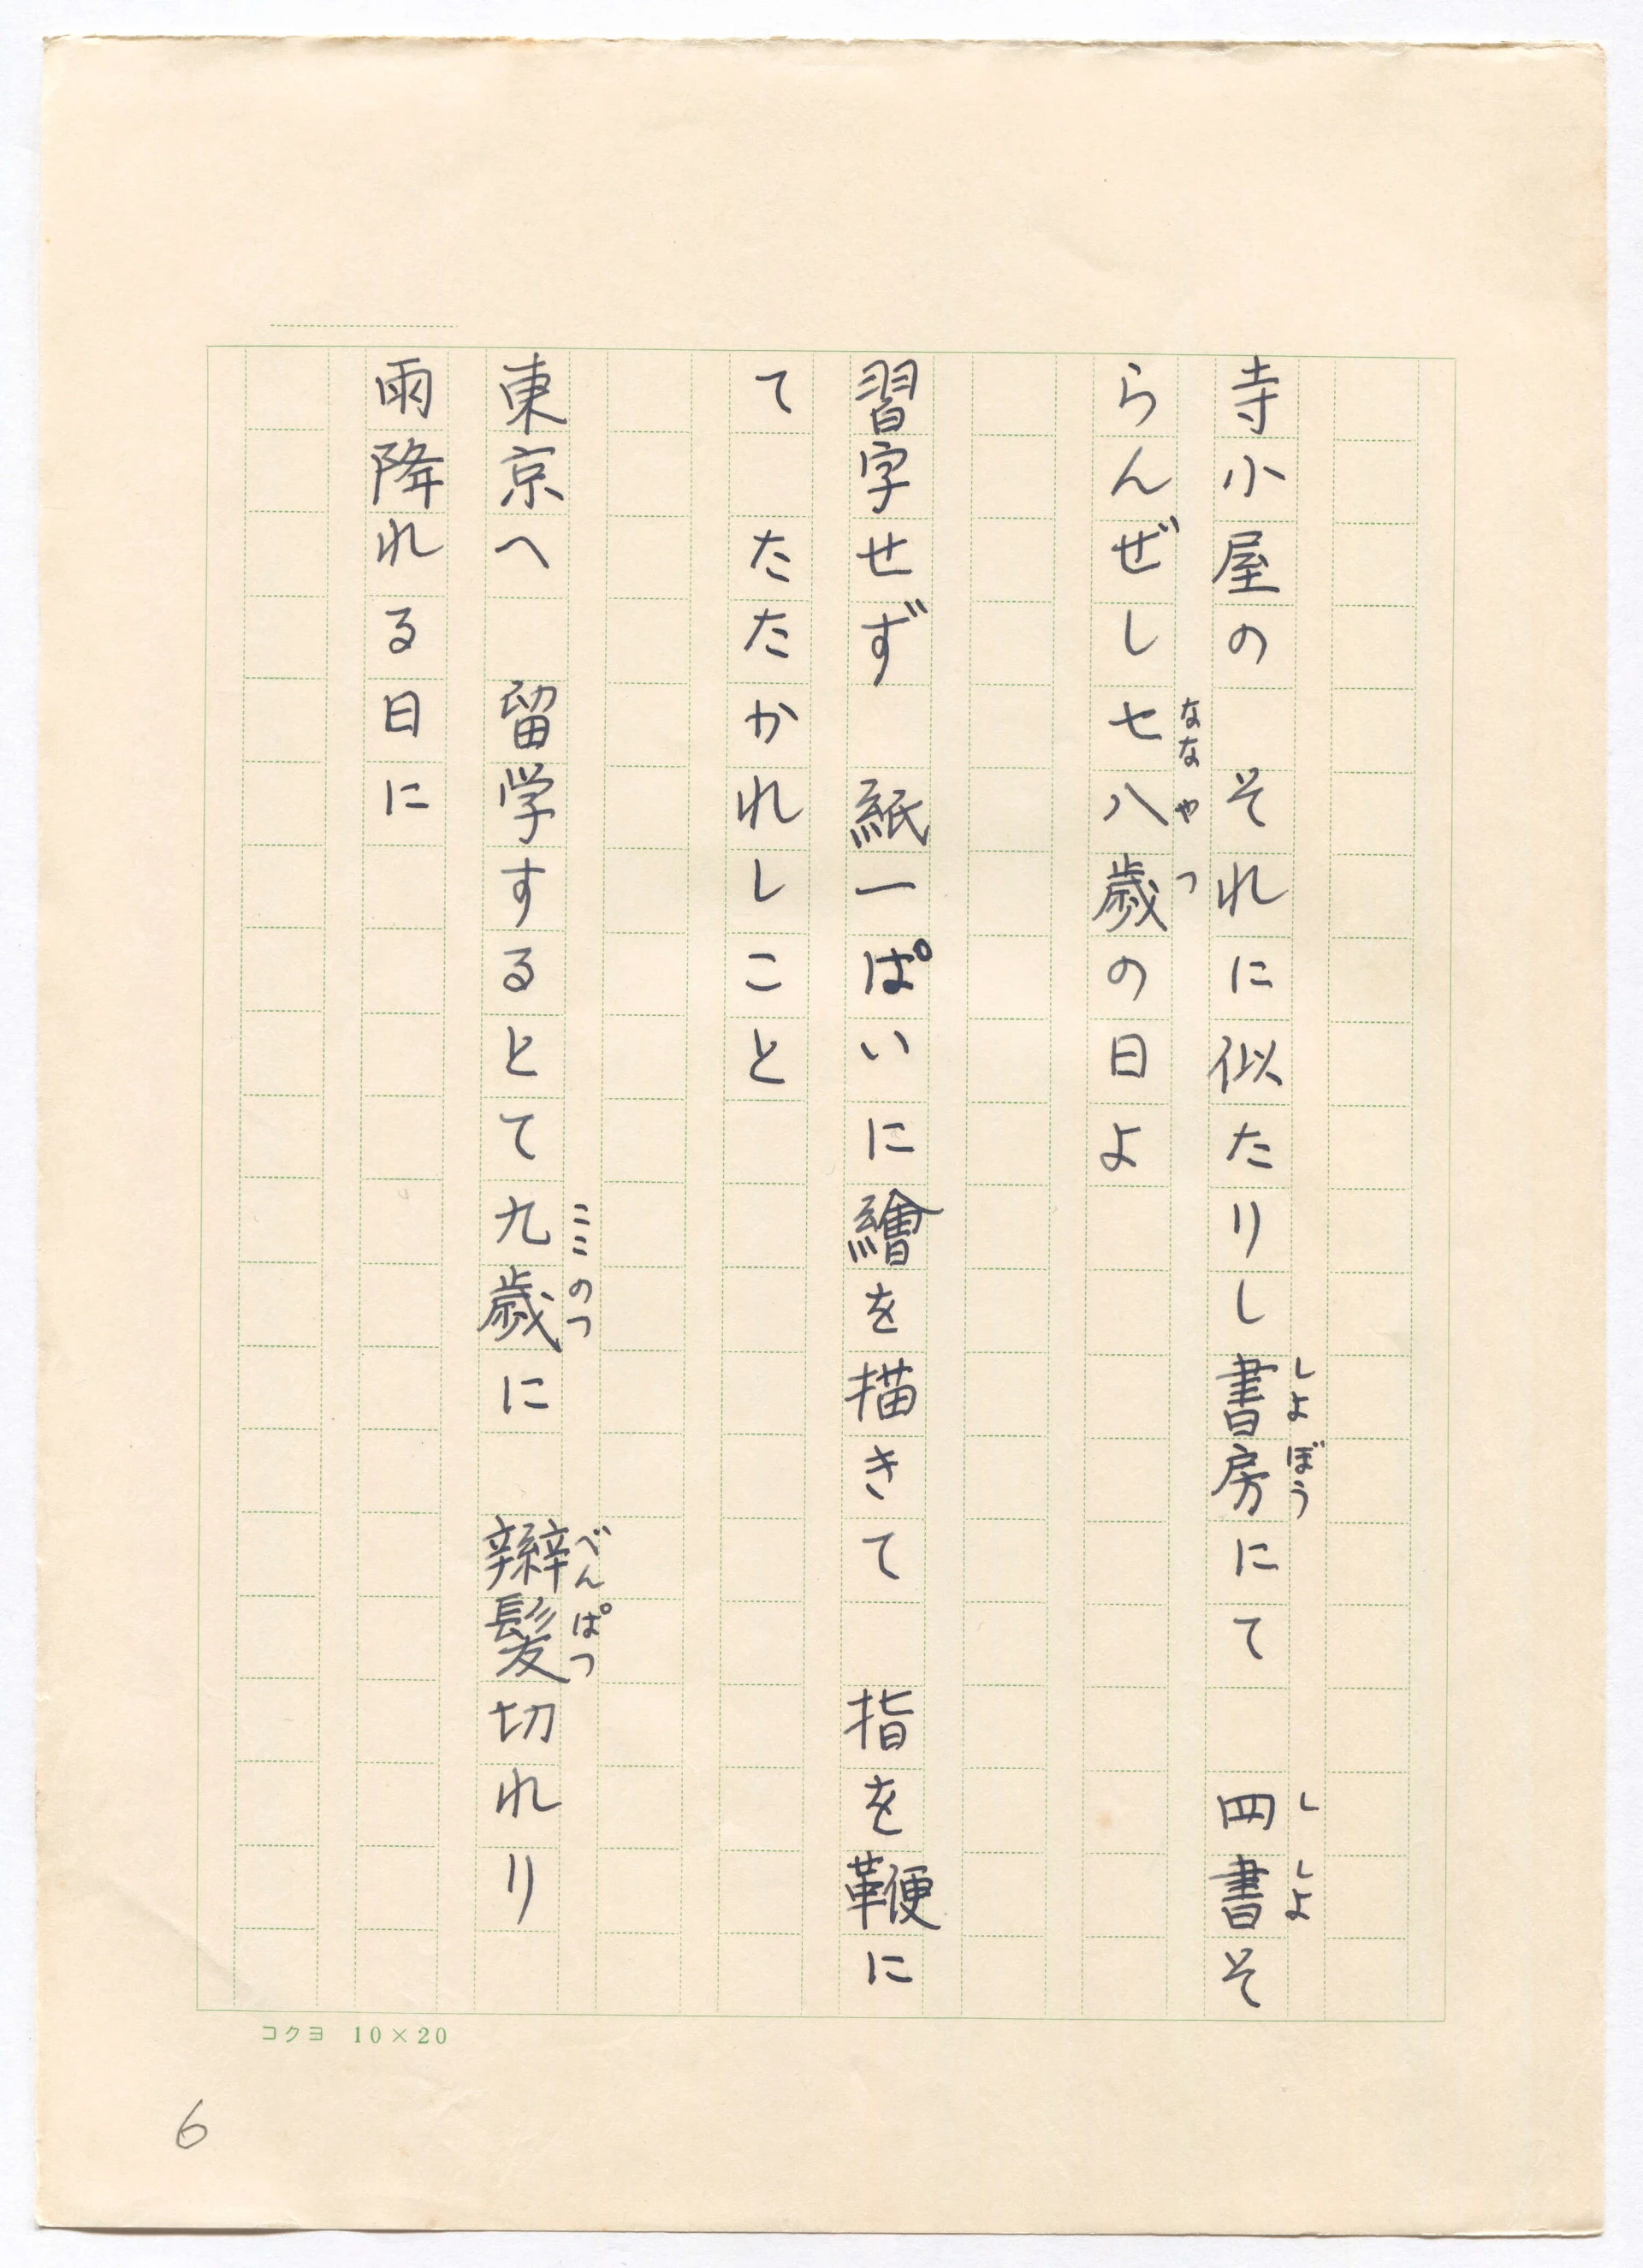 寺小屋の　それに似たりし書房にて　四書そ
らんぜし七八歳の日よ
習字せず　紙一ぱいに繪を描きて　指を鞭に
て　たたかれしこと
東京へ　留学するとて九歳に　辮髪切れり
雨降れる日に
しよぼう
し　しよ
ななやつ
ここのつ
べんぱつ
コクヨ　10×20
6